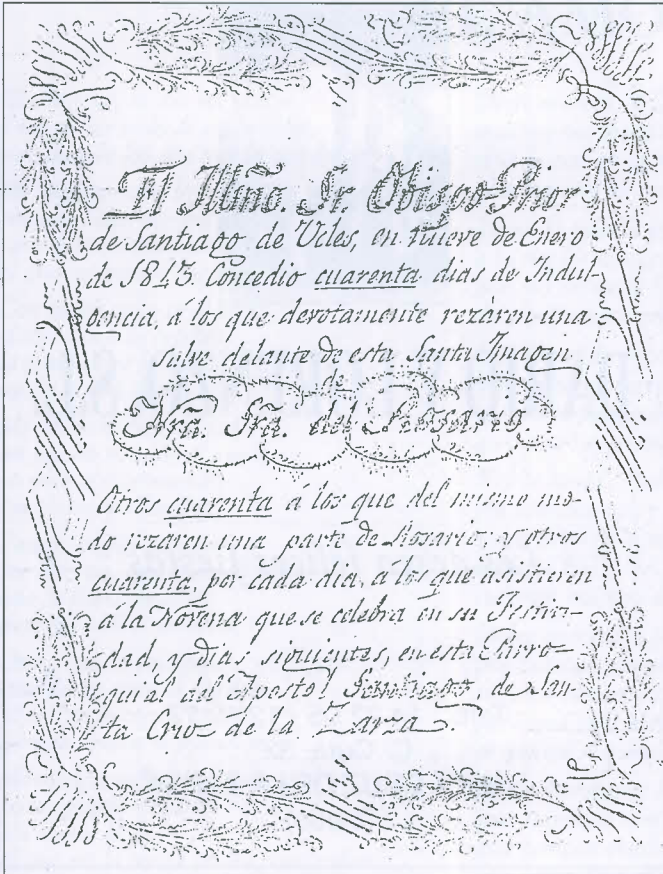 El Illmo. Sr. Obispo-Prior
de Santiago de Ucles, en nueve de Enero
de 1843. Concedio cuarenta dias de Indul-
gencia, á los que devotamente rezáren una
salve delante de esta Santa Imagen
de
Nrã. Srã. del Rosario.
Otros cuarenta á los que del mismo mo-
do rezáren una parte de Rosario; y otros
cuarenta, por cada dia, á los que asistieren
á la Novena que se celebra en su Festivi-
dad, y dias siguientes, en esta Parro-
quial del Apostol Santiago, de San-
ta Cruz de la Zarza.